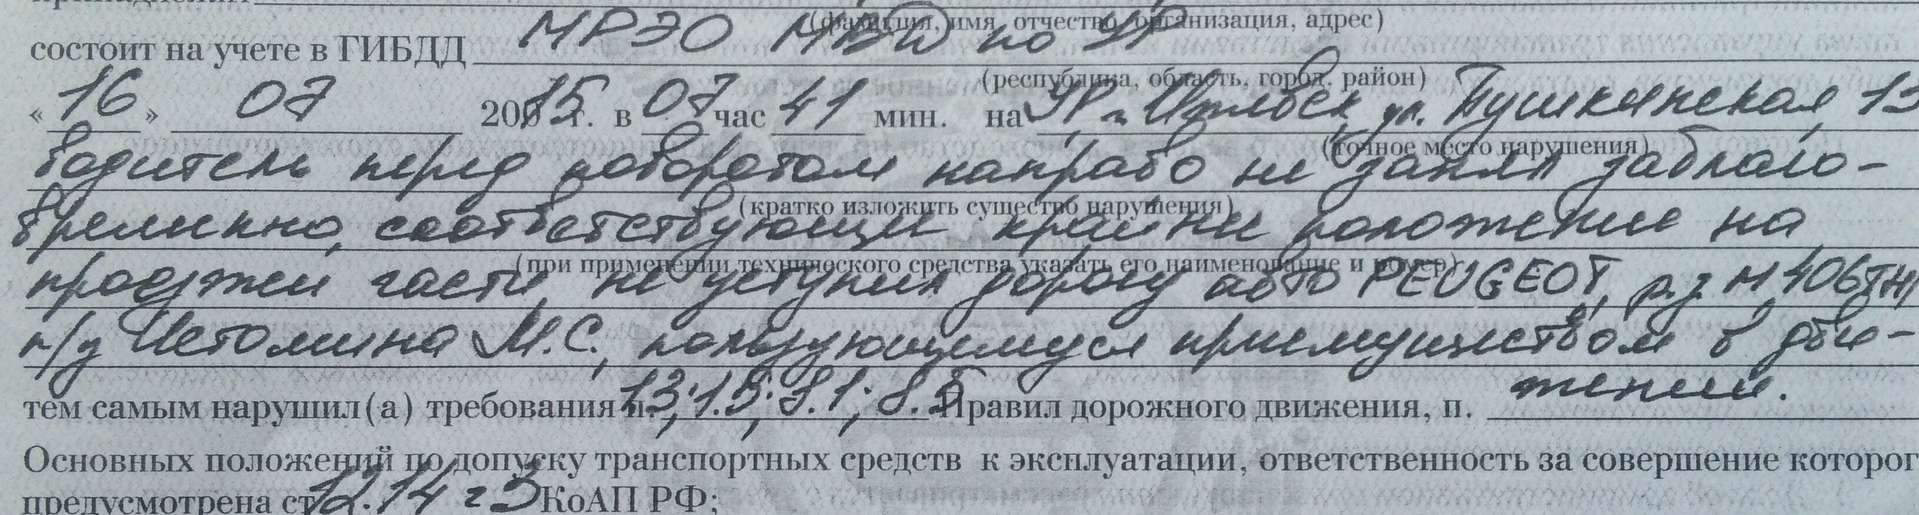 (фамилия, имя, отчество, организация, адрес)
состоит на учете в ГИБДД МРЭО МВД по УР
(республика, область, город, район)
«16» 07 2015 г. в 07 час 41 мин. на УР г. Ижевск, ул. Пушкинская,
(точное место нарушения)
водитель перед поворотом направо не занял заблаго-
(кратко изложить существо нарушения)
временно, соответствующее крайнее положение на
(при применении технического средства указать его наименование и номер)
проезжей части, не уступил дорогу авто PEUGEOT, р.з. М406ТН
п/у Истомина М.С., пользующемуся преимуществом в дви-
жении.
тем самым нарушил(а) требования п. 1.3; 1.5; 8.1; 8.5 Правил дорожного движения, п.
Основных положений по допуску транспортных средств к эксплуатации, ответственность за совершение которог
предусмотрена ст. 12.14 ч 3 КоАП РФ;